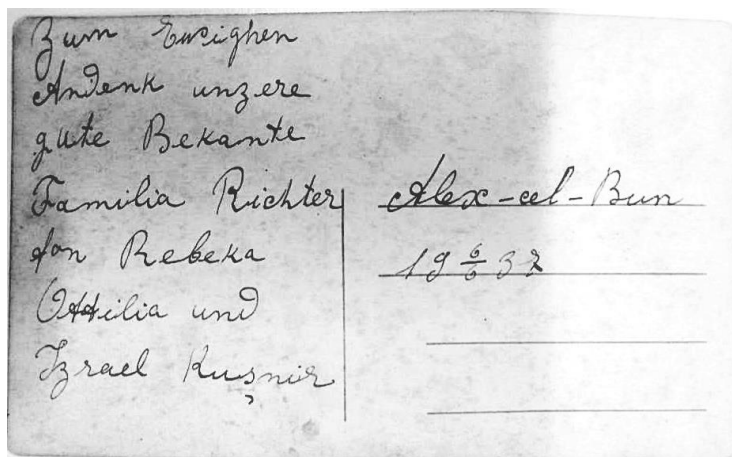 Zum Ewighen
Andenk unzere
gute Bekante
Familia Richter
fon Rebeka
Ottilia und
Izrael Kușnir
Alex-cel-Bun
19 6/6 37